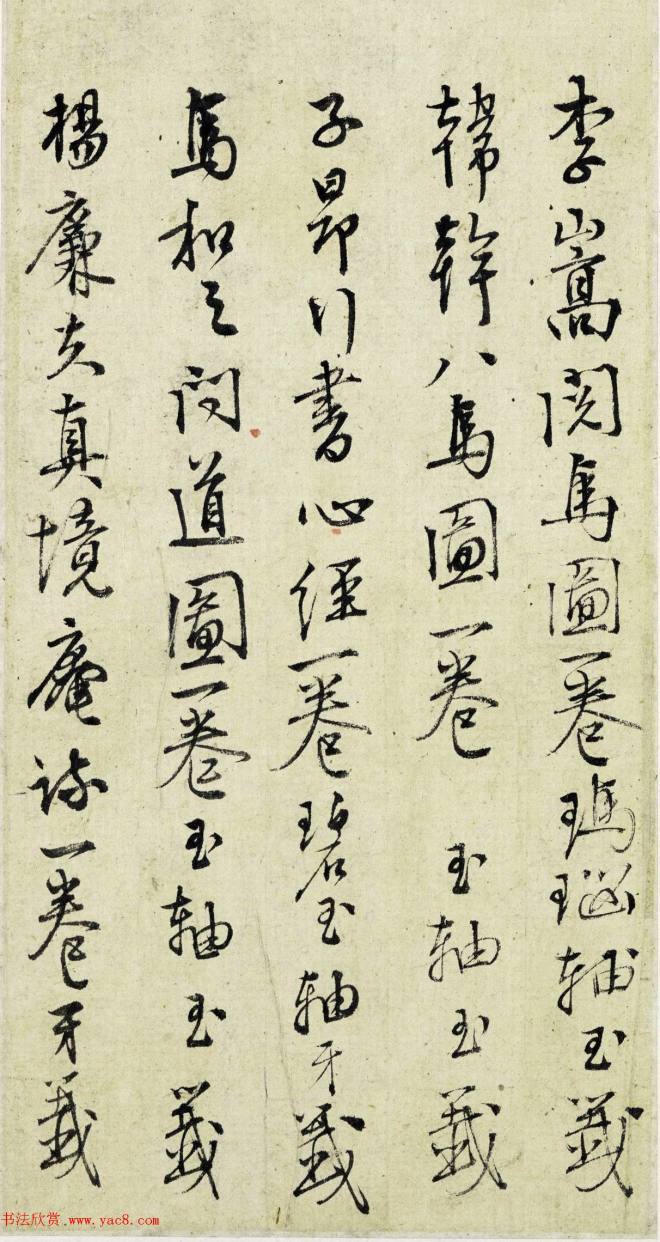 李嵩閱馬圖一卷瑪瑙軸玉籤
韓幹八馬圖一卷 玉軸玉籤
子昂行書心經一卷碧玉軸牙籤
馬和之問道圖一卷玉軸玉籤
楊廉夫真境庵疏一卷牙籤
书法欣赏 www.yac8.com